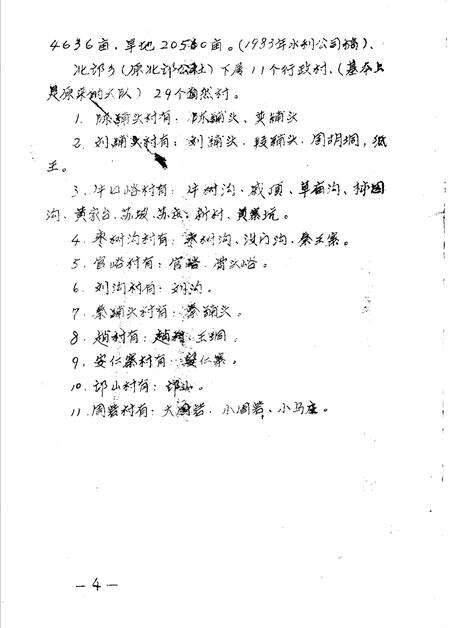 4636亩，旱地20580亩。(1983年水利公司稿)、
北邙乡(原北邙公社)下属11个行政村，(基本上
是原来的大队)29个自然村。
1. 陈铺头村有：陈铺头、英铺头
2. 刘铺头村有：刘铺头、铺头、周胡垌，
王。
3. 牛口峪村有：牛树沟、顶、草庙沟、
沟、黄家台、苏坡、苏庄、新村、黄寨坑。
4. 枣树沟村有：枣树沟、没门沟、秦王寨。
5. 官峪村有：官峪、峪。
6. 刘沟村有：刘沟。
7. 秦铺头村有：秦铺头。
8. 赵村有：赵村、王垌。
9. 安仁寨村有：安仁寨。
10. 邙山村有：邙山。
11. 周砦村有：大周砦、小周砦、小马庄。
—4—